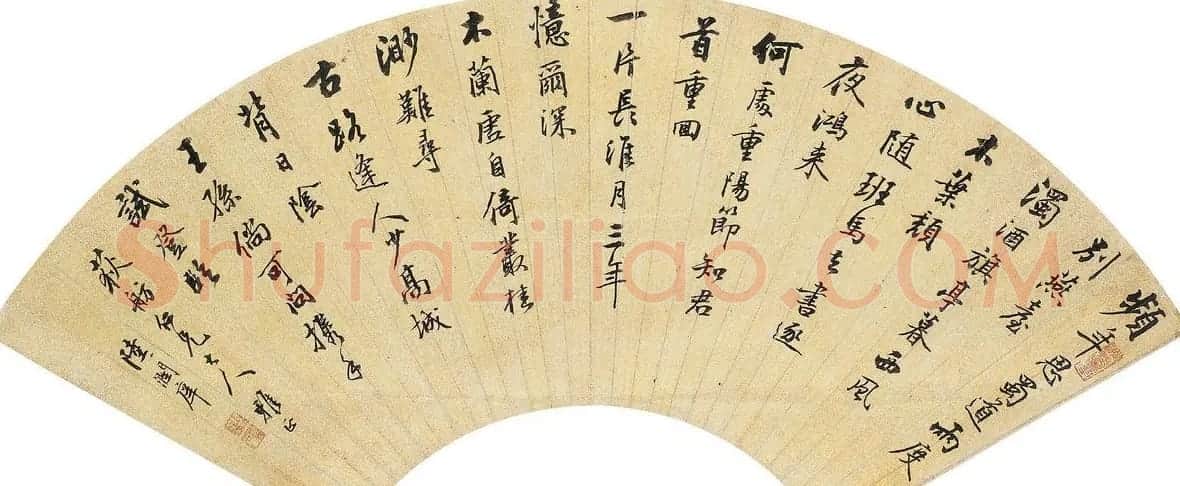 頻年思蜀道兩度
別燕臺
濁酒旗亭暮西風
木葉頹
心隨班馬去書逐
夜鴻来
何處重陽節知君
首重囬
一片長淮月三年
憶爾深
木蘭虛自倚叢桂
渺難尋
古路逢人少高城
背日陰
王孫倘可問攜手
試登臨
荻舫仁兄大人雅正
陸潤庠
Shufaziliao.COM